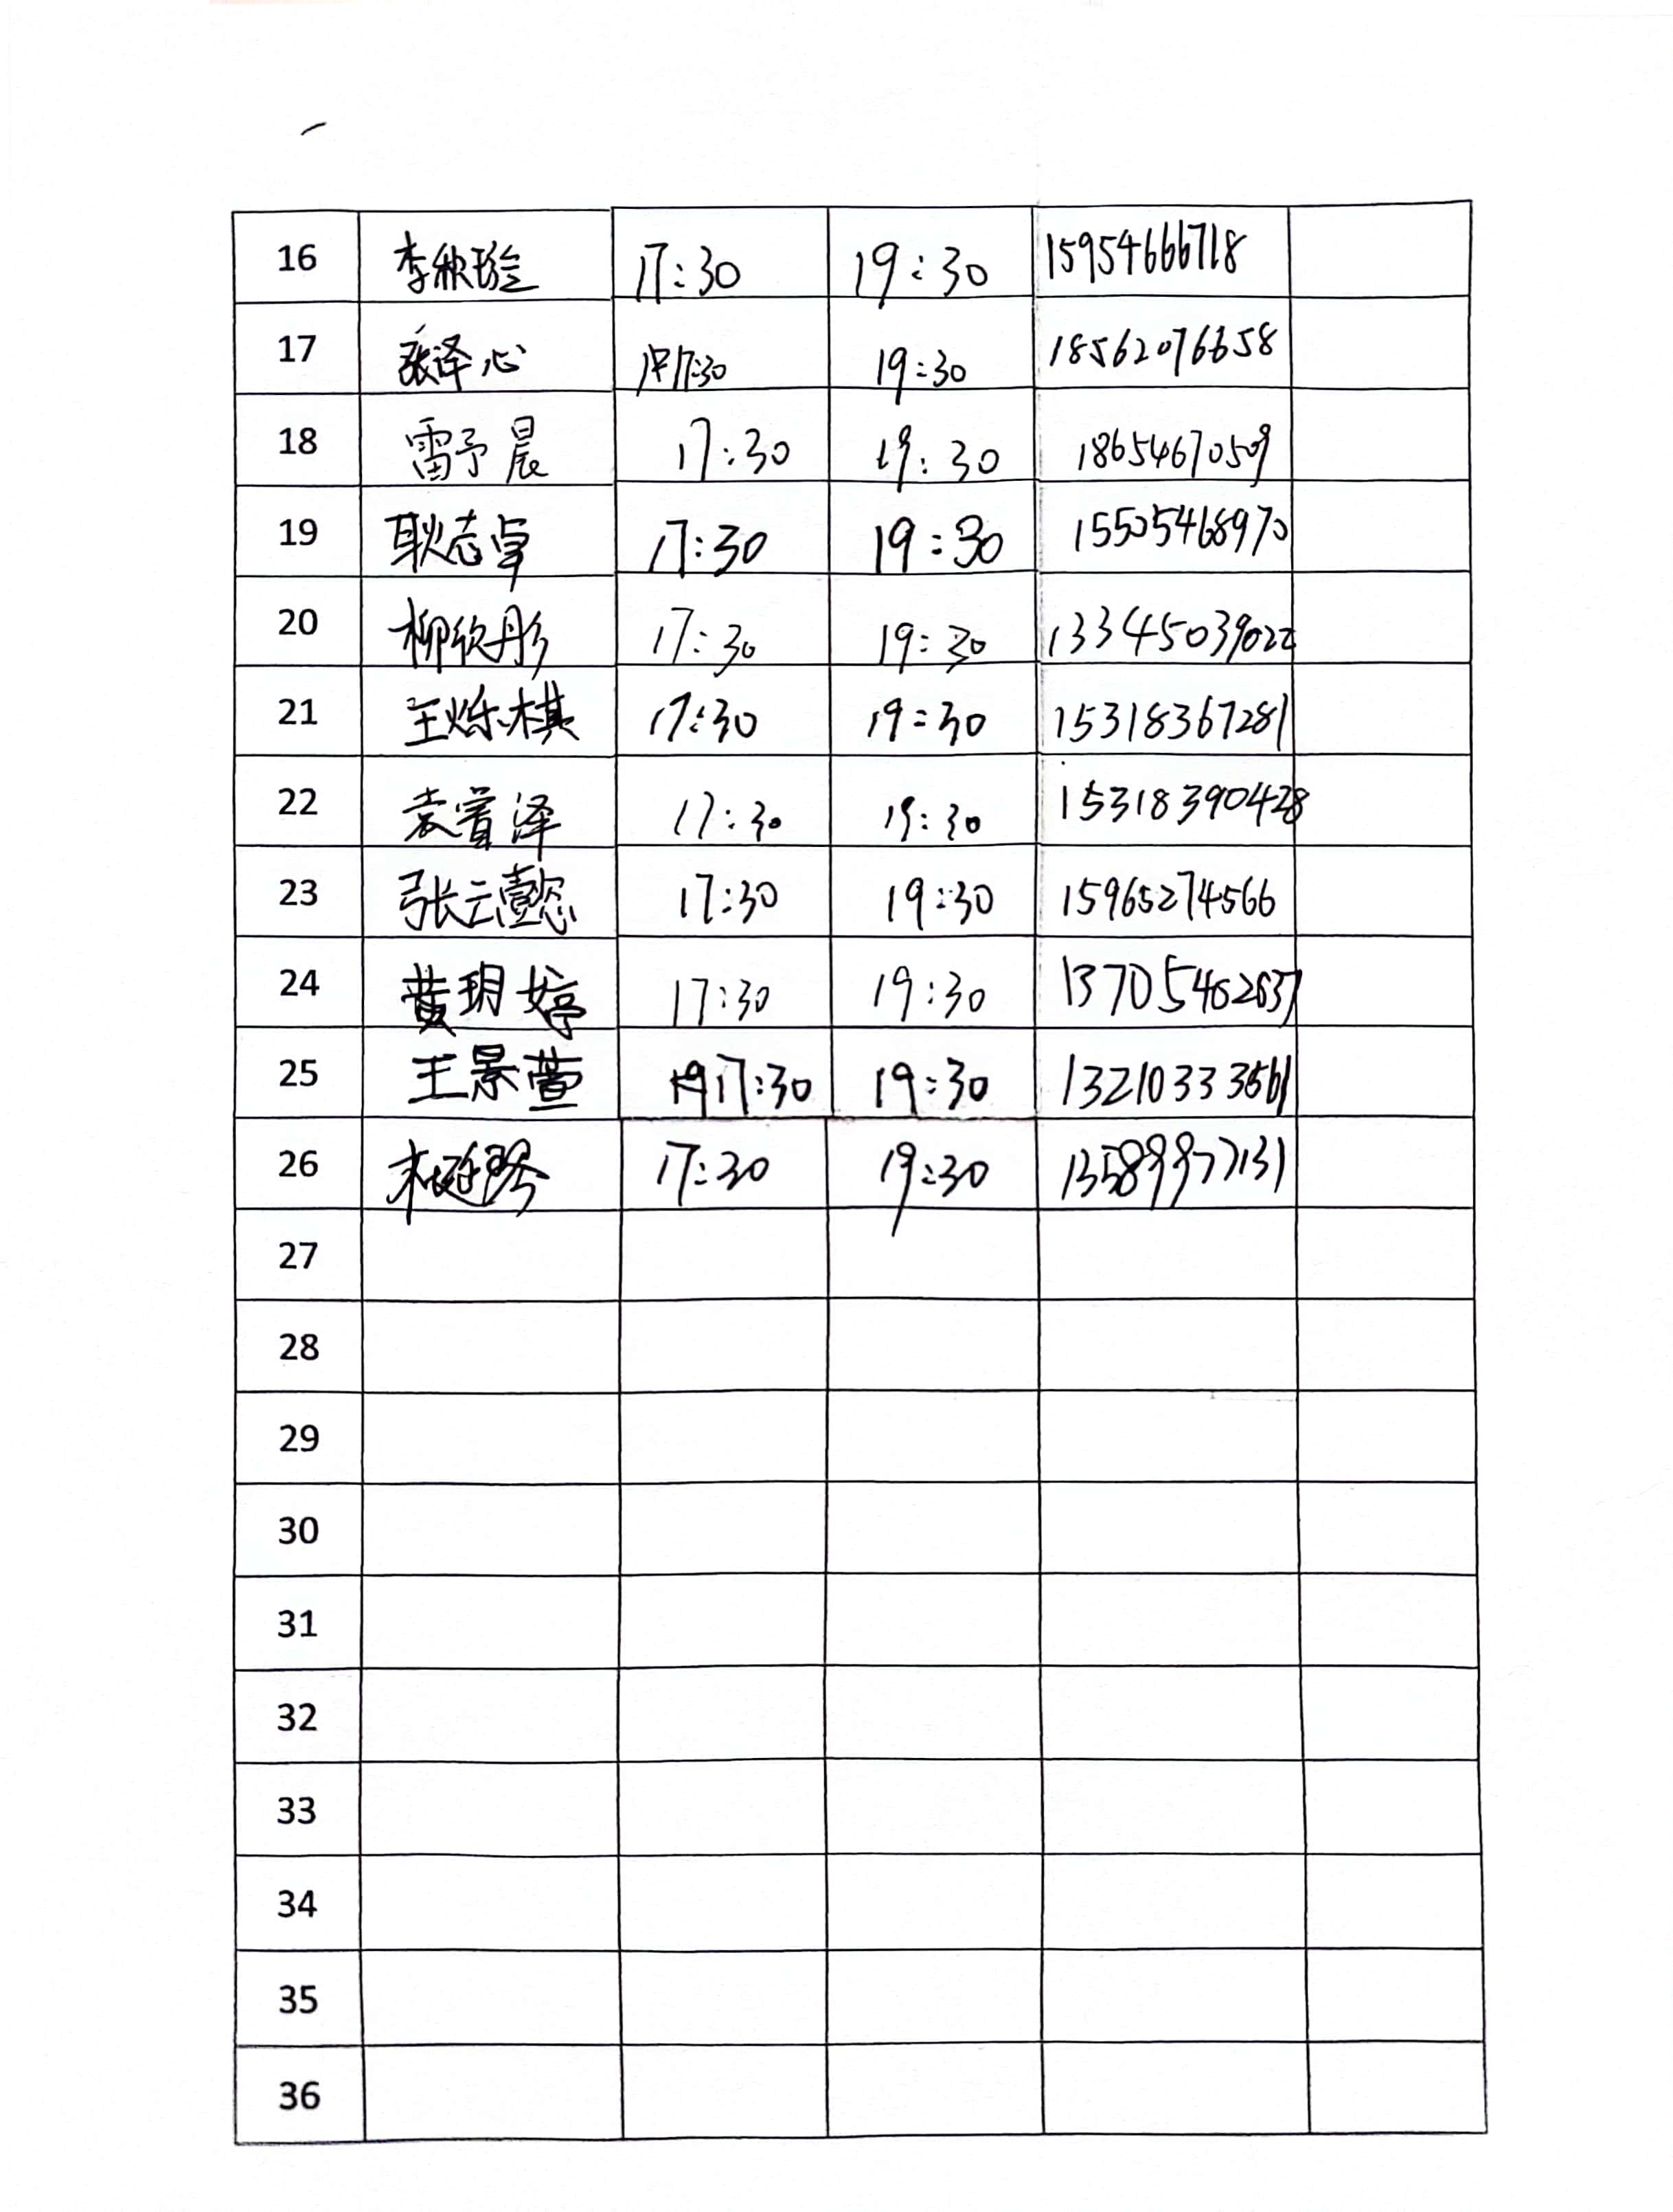 16 李秋璇 17:30 19:30 15954666718
17 张泽心 17:30 19:30 18562076658
18 雷予晨 17:30 19:30 18654670509
19 耿志卓 17:30 19:30 15505468970
20 柳欣彤 17:30 19:30 13345039022
21 王烁棋 17:30 19:30 15318367281
22 袁萱泽 17:30 19:30 15318390428
23 张云懿 17:30 19:30 15965274566
24 黄玥婷 17:30 19:30 13705462637
25 王景萱 17:30 19:30 13210333561
26 17:30 19:30 13589977131
27
28
29
30
31
32
33
34
35
36